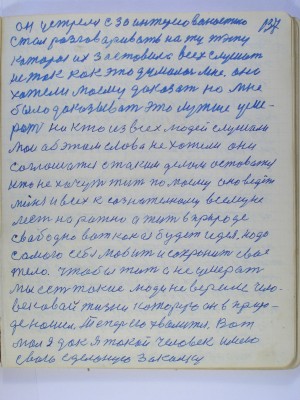 137
он устрели с заинтересованостию
стал разговаривать на ту тему
которая их заставила всех слушать
не так как это думалось мне, они
хотели моему доказат но мне
было доказывать это лутше уме-
рот на кто из всех людей слушали
мои об этом слова не хотели они
соглошатся с таким делом оставать
что не хочут жит по моему оно ведет
меня и всех к сознательному всему не
лест но равно а жит в природе
свабодно вот какая будет идея, надо
самого себя любить и сохранит свае
тело. чтобы жит и не умерат
мы ест такие люди не верыли чело-
векавай жизни которую он в приро-
де нашел. Теперь его хвалится. Вот
моя я док я такой человек имею
свою сделоную закалку